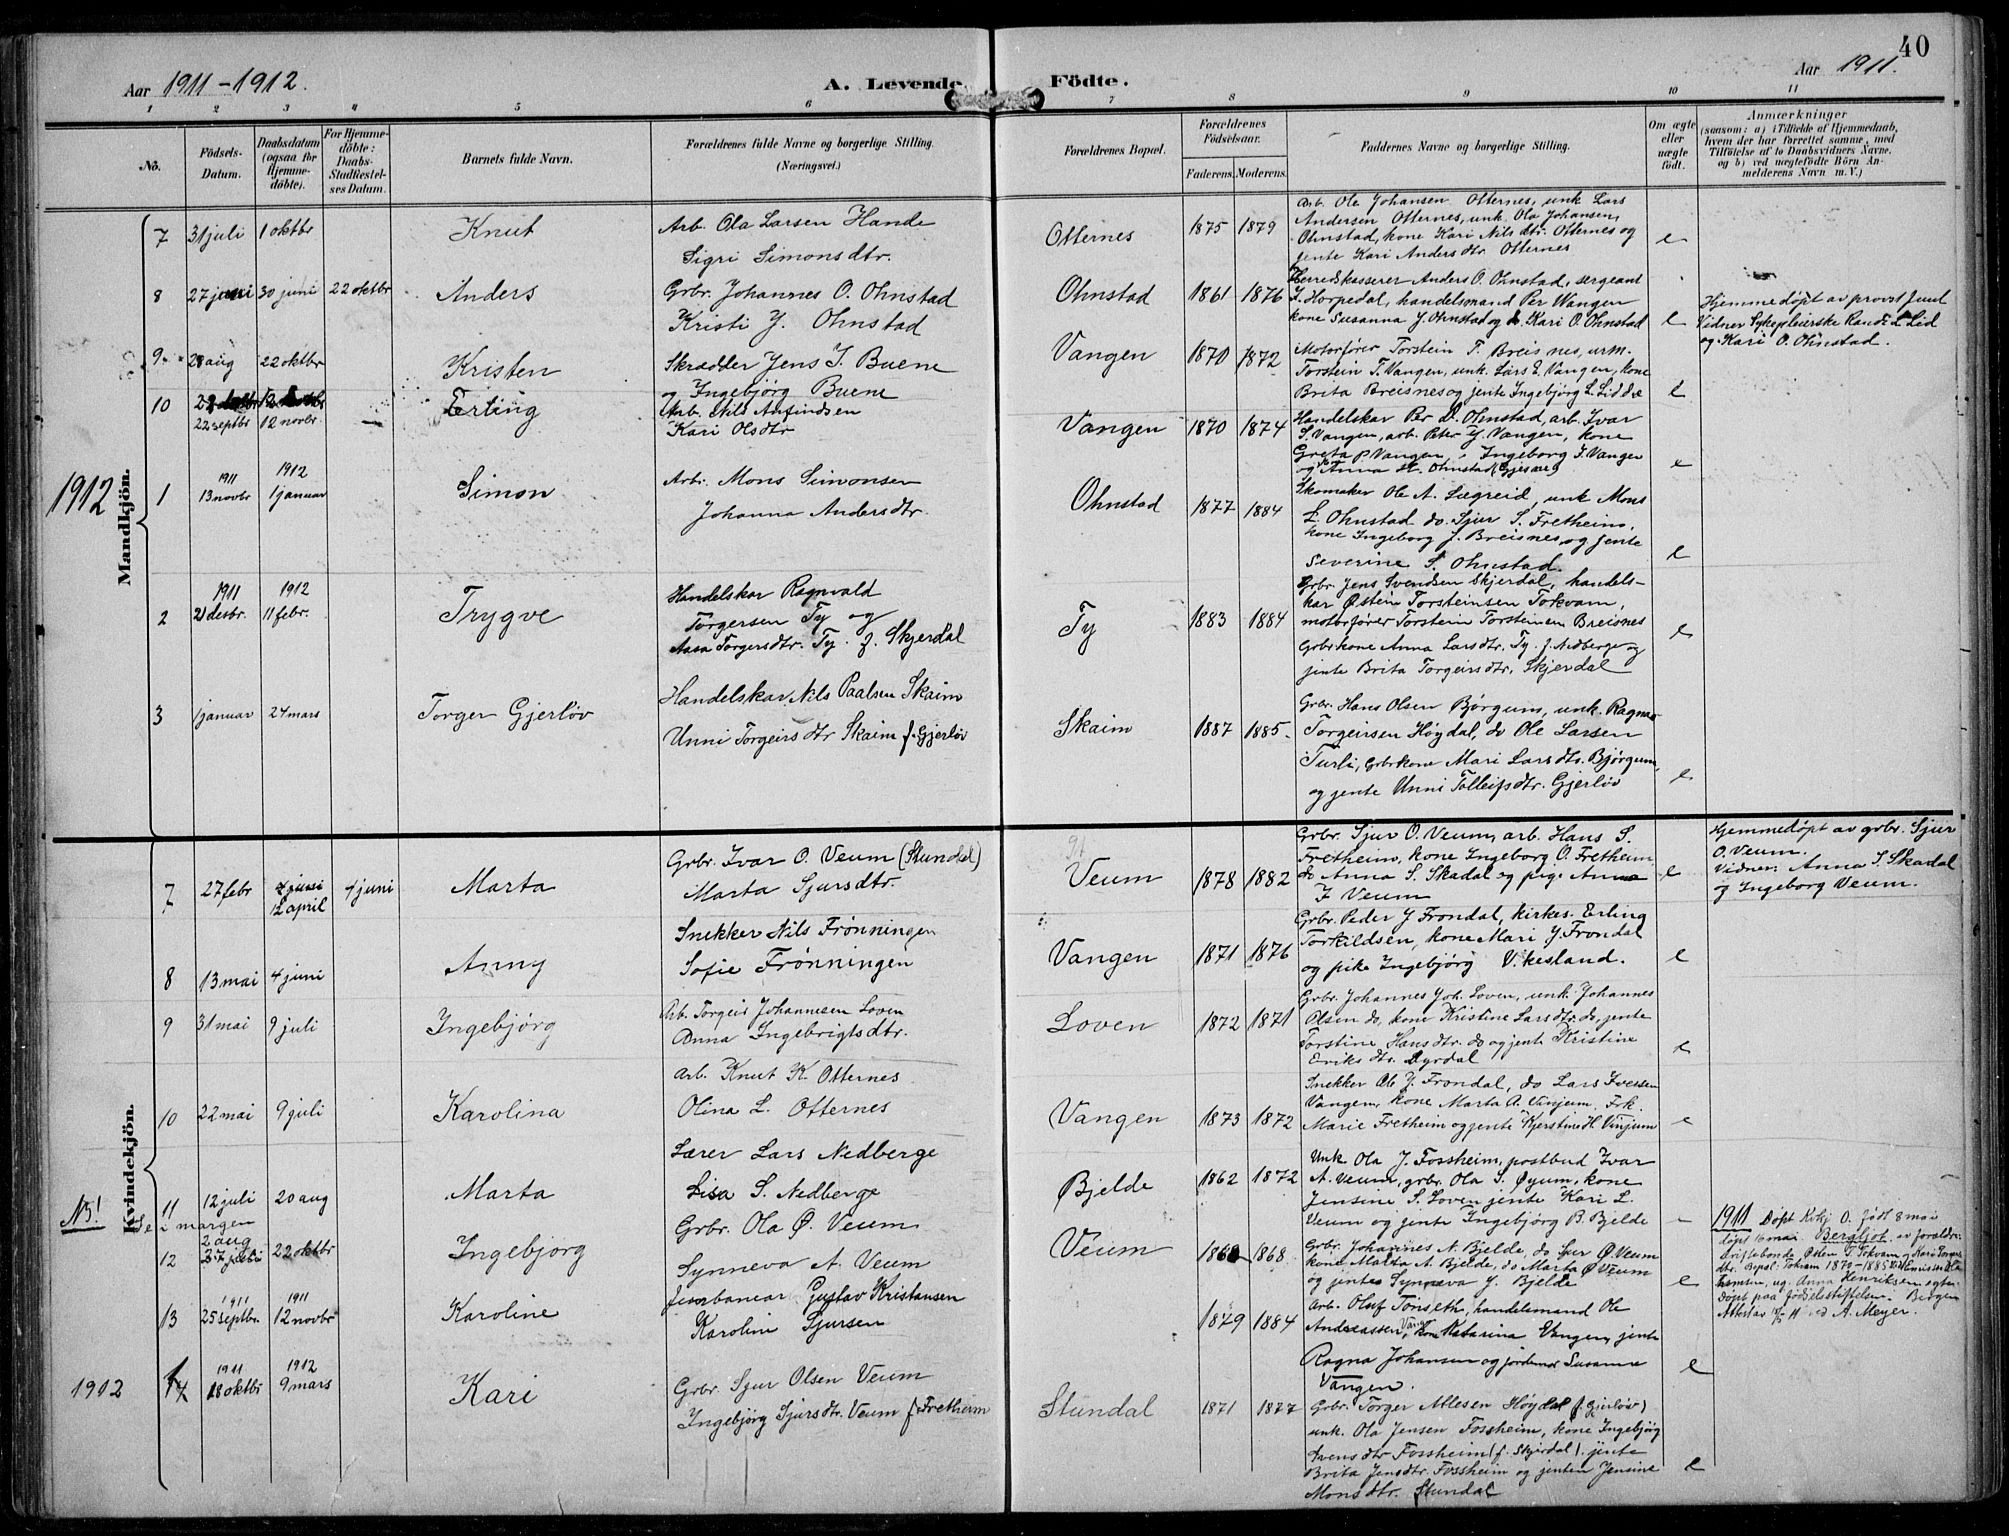 40
Aar 1911-1912.
A. Levende Födte.
Aar 1911.
1 2 3 4 5 6 7 8 9 10 11
No.
Födsels-
Datum.
Daabsdatum
(ogsaa for
Hjemme-
döbte).
For Hjemme-
döbte:
Daabs-
Stadfæstel-
ses Datum.
Barnets fulde Navn.
Forældrenes fulde Navne og borgerlige Stilling.
(Næringsvei.)
Forældrenes Bopæl.
Forældrenes
Födselsaar.
Faderens. Moderens.
Faddernes Navne og borgerlige Stilling.
Om ægte
eller
uægte
födt.
Anmærkninger
(saasom: a) i Tilfælde af Hjemmedaab,
hvem der har forrettet samme, med
Tilföielse af to Daabsvidners Navne.
og b) ved uægtefödte Börn An-
melderens Navn m. V.)
Mandkjön.
7 31 juli 1 oktbr Knut
Arb. Ola Larsen Hande
Sigri Simonsdtr.
Otternes 1875 1879
Arb. Ole Johansen Otternes, unk Lars
Andersen Otternes, unk. Ola Johansen,
Ohnstad, kone Kari Nilsdtr. Otternes og
jente Kari Andersdtr. Otternes
e
8 27 juni 30 juni 22 oktbr Anders
Grbr. Johannes O. Ohnstad
Kristi J. Ohnstad
Ohnstad 1861 1876
Herredskasserer Anders O. Ohnstad, sergeant
J. Horpedal, handelsmand Per Vangen
kone Susanna J. Ohnstad og do. Kari O. Ohnstad
e
Hjemmedøpt av provst Juul
Vidner Sykepleierske Randi L Lid
og Kari O. Ohnstad.
9 28 aug 22 oktbr Kristen
Skrædder Jens J. Buene
og Ingebjörg Buene
Vangen 1870 1872
Motorfører Torstein T. Breisnes, urm.
Torstein T. Vangen, unk. Lars E. Vangen, kone
Brita Breisnes og jente Ingebjörg L. Lid
e
10 22 septbr 12 novbr. Erling
Arb. Nils Anfindsen
Kari Olsdtr
Vangen 1870 1874
Handelskar Per D. Ohnstad, arb. Ivar
S. Vangen, arb. Peter J. Vangen, kone
Greta P Vangen, Ingeborg J. Vangen
og Anna M. Ohnstad
e
1912
1 1911 13 novbr 1912 1 januar Simon
Arbr. Mons Simonsen
Johanna Andersdtr.
Ohnstad 1877 1884
Skomaker Ole A. Lægreid, unk Mons
L. Ohnstad do. Sjur S. Fretheim,
kone Ingeborg J. Breisnes og jente
Severine S. Ohnstad.
e
2 1911 21 desbr. 1912 11 febr. Trygve
Handelskar Ragnvald
Torgersen Ty og
Aasa Torgersdtr. Ty. f. Skjerdal
Ty 1883 1884
Grbr. Jens Svendsen Skjerdal, handels-
kar Østein Torsteinsen Tokvam,
motorfører Torstein Torsteinsen Breisnes
Grbrkone Anna Larsdtr. Ty. f. Nedberge og
jente Brita Torgeirsdtr. Skjerdal
e
3 1 januar 24 mars Torger Gjerløv
Handelskar Nils Paalsen Skaim
Unni Torgeirsdtr Skaim f. Gjerløv
Skaim 1887 1885
Grbr. Hans Olsen Bjørgum, unk. Ragnv
Torgeirsen Høydal, do Ole Larsen
Turli, Grbrkone Mari Larsdtr. Bjørgum,
og jente Unni Tolleifsdtr. Gjerløv
e
Kvindekjön.
7 27 febr 12 april 4 juni Marta
Grbr. Ivar O. Veum (Stundal)
Marta Sjursdtr.
Veum 1878 1882
Grbr. Sjur O. Veum, arb. Hans S.
Fretheim, kone Ingeborg O. Fretheim
do Anna S. Skadal og pige Anna
I Veum
e
Hjemmedøpt av grbr. Sjur
O. Veum.
Vidner: Anna S. Skadal
og Ingeborg Veum.
8 13 mai 4 juni Anny
Snekker Nils Frønningen
Sofie Frønningen
Vangen 1871 1876
Grbr. Peder J Frondal, kirkes. Erling
Torkildsen, kone Mari J. Frondal
og pike Ingebjörg Vikesland.
e
9 31 mai 9 juli Ingebjörg
Arb. Torgeir Johannesen Loven
Anna Ingebrigtsdtr.
Loven 1872 1871
Grbr. Johannes Joh. Loven, unk. Johannes
Olsen do, kone Kristine Larsdtr. do, jente
Torstine Hansdtr. do og jente Kristine
Eriksdtr. Dyrdal
e
10 22 mai 9 juli Karolina
Arb. Knut K. Otternes
Olina L. Otternes
Vangen 1873 1872
Snekker Ole J. Frondal, do Lars Iversen
Vangen, kone Marta A. Vinjum, Frk.
Marie Fretheim og jente Kjerstine H. Vinjum
e
11 12 juli 20 aug Marta
Lærer Lars Nedberge
Lisa S. Nedberge
Bjelde 1862 1872
Unk Ola J. Fossheim, postbud Ivar
A. Veum, grbr. Ola S. Øyum, kone
Jensine S. Loven jente Kari L.
Veum og jente Ingebjörg B. Bjelde
NB! Se margen
12 2 aug 22 oktbr Ingebjorg
Grbr. Ola Ø. Veum
Synneva A. Veum
Veum 1868
Grbr. Johannes N. Bjelde, do Sjur Ø. Veum
kone Malta A. Bjelde, do Marta Ø Veum
og jente Synneva J. Bjelde
e
1911 Døpt Kvkj O. født 8 mai
døpt 16 mai Bergljot av foraldre:
13 1911 25 septbr. 1911 12 novbr Karoline
Jernbanear Gustav Kristansen
Karolini Sjursen
1879 1884
Arb. Oluf Tonseth, handelsmand Ole
Andreassen Vangen, kone Katarina Vangen, jente
Ragna Johansen og jordemor Susanna
Vangen.
e
døpt paa fødselsstiftelsen i Bergen
A. Meyer.
1912
14 1911 18 oktbr 1912 9 mars Kari
Grbr. Sjur Olsen Veum
Ingebjörg Sjursdtr. Veum f. Fretheim
Stundal 1871 1877
Grbr. Torger Allesen Høydal (f. Gjerløv)
unk. Ola Jensen Fossheim, kone Ingebjörg
Svensdtr Fossheim (f. Skjerdal). jente
Brita Jensdtr. Fossheim og jenten Jensine
Monsdtr. Stundal
e